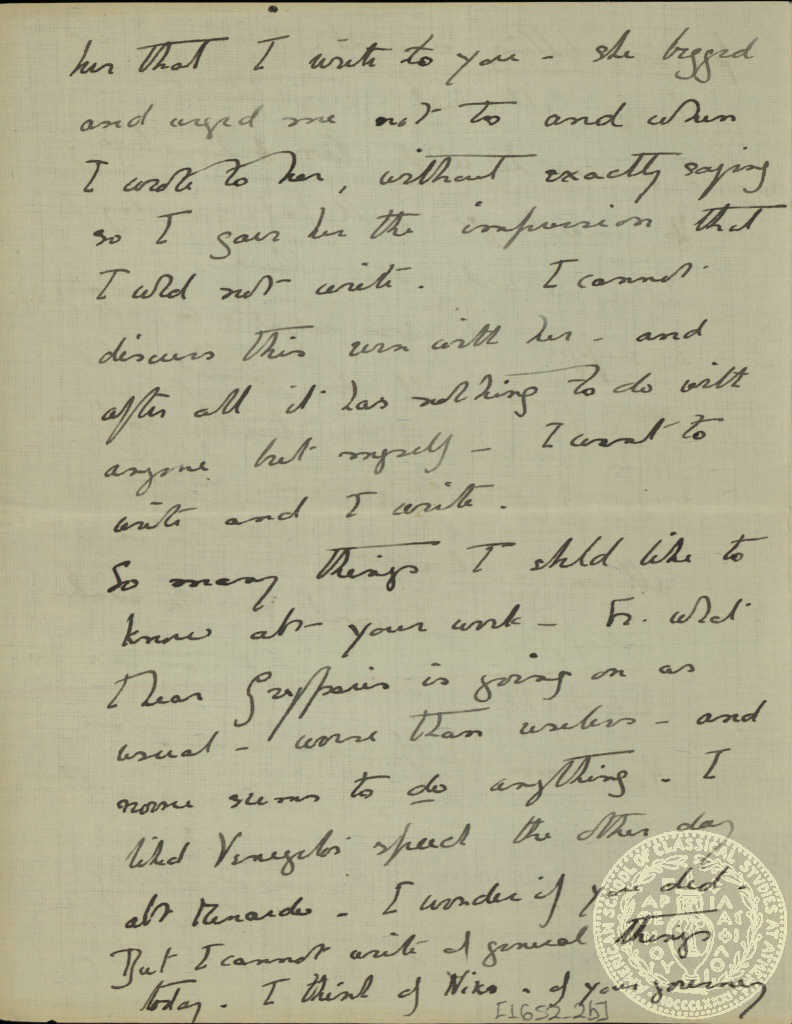 her that I write to you – she begged
and urged me not to and when
I wrote to her, without exactly saying
so I gave her the impression that
I wld not write. I cannot
discuss this even with her – and
after all it has nothing to do with
anyone but myself – I want to
write and I write.
So many things I shld like to
know abt your work – Fr. what
I hear Gryparis is going on as
usual – worse than useless – and
noone seems to do anything – I
liked Venezelos' speech the other day
abt – I wonder if you did –
But I cannot write of general things
today – I think of Niko – of your journey
[1652_2b]
AMERICAN SCHOOL OF CLASSICAL STUDIES AT ATHENS
MDCCCLXXXI